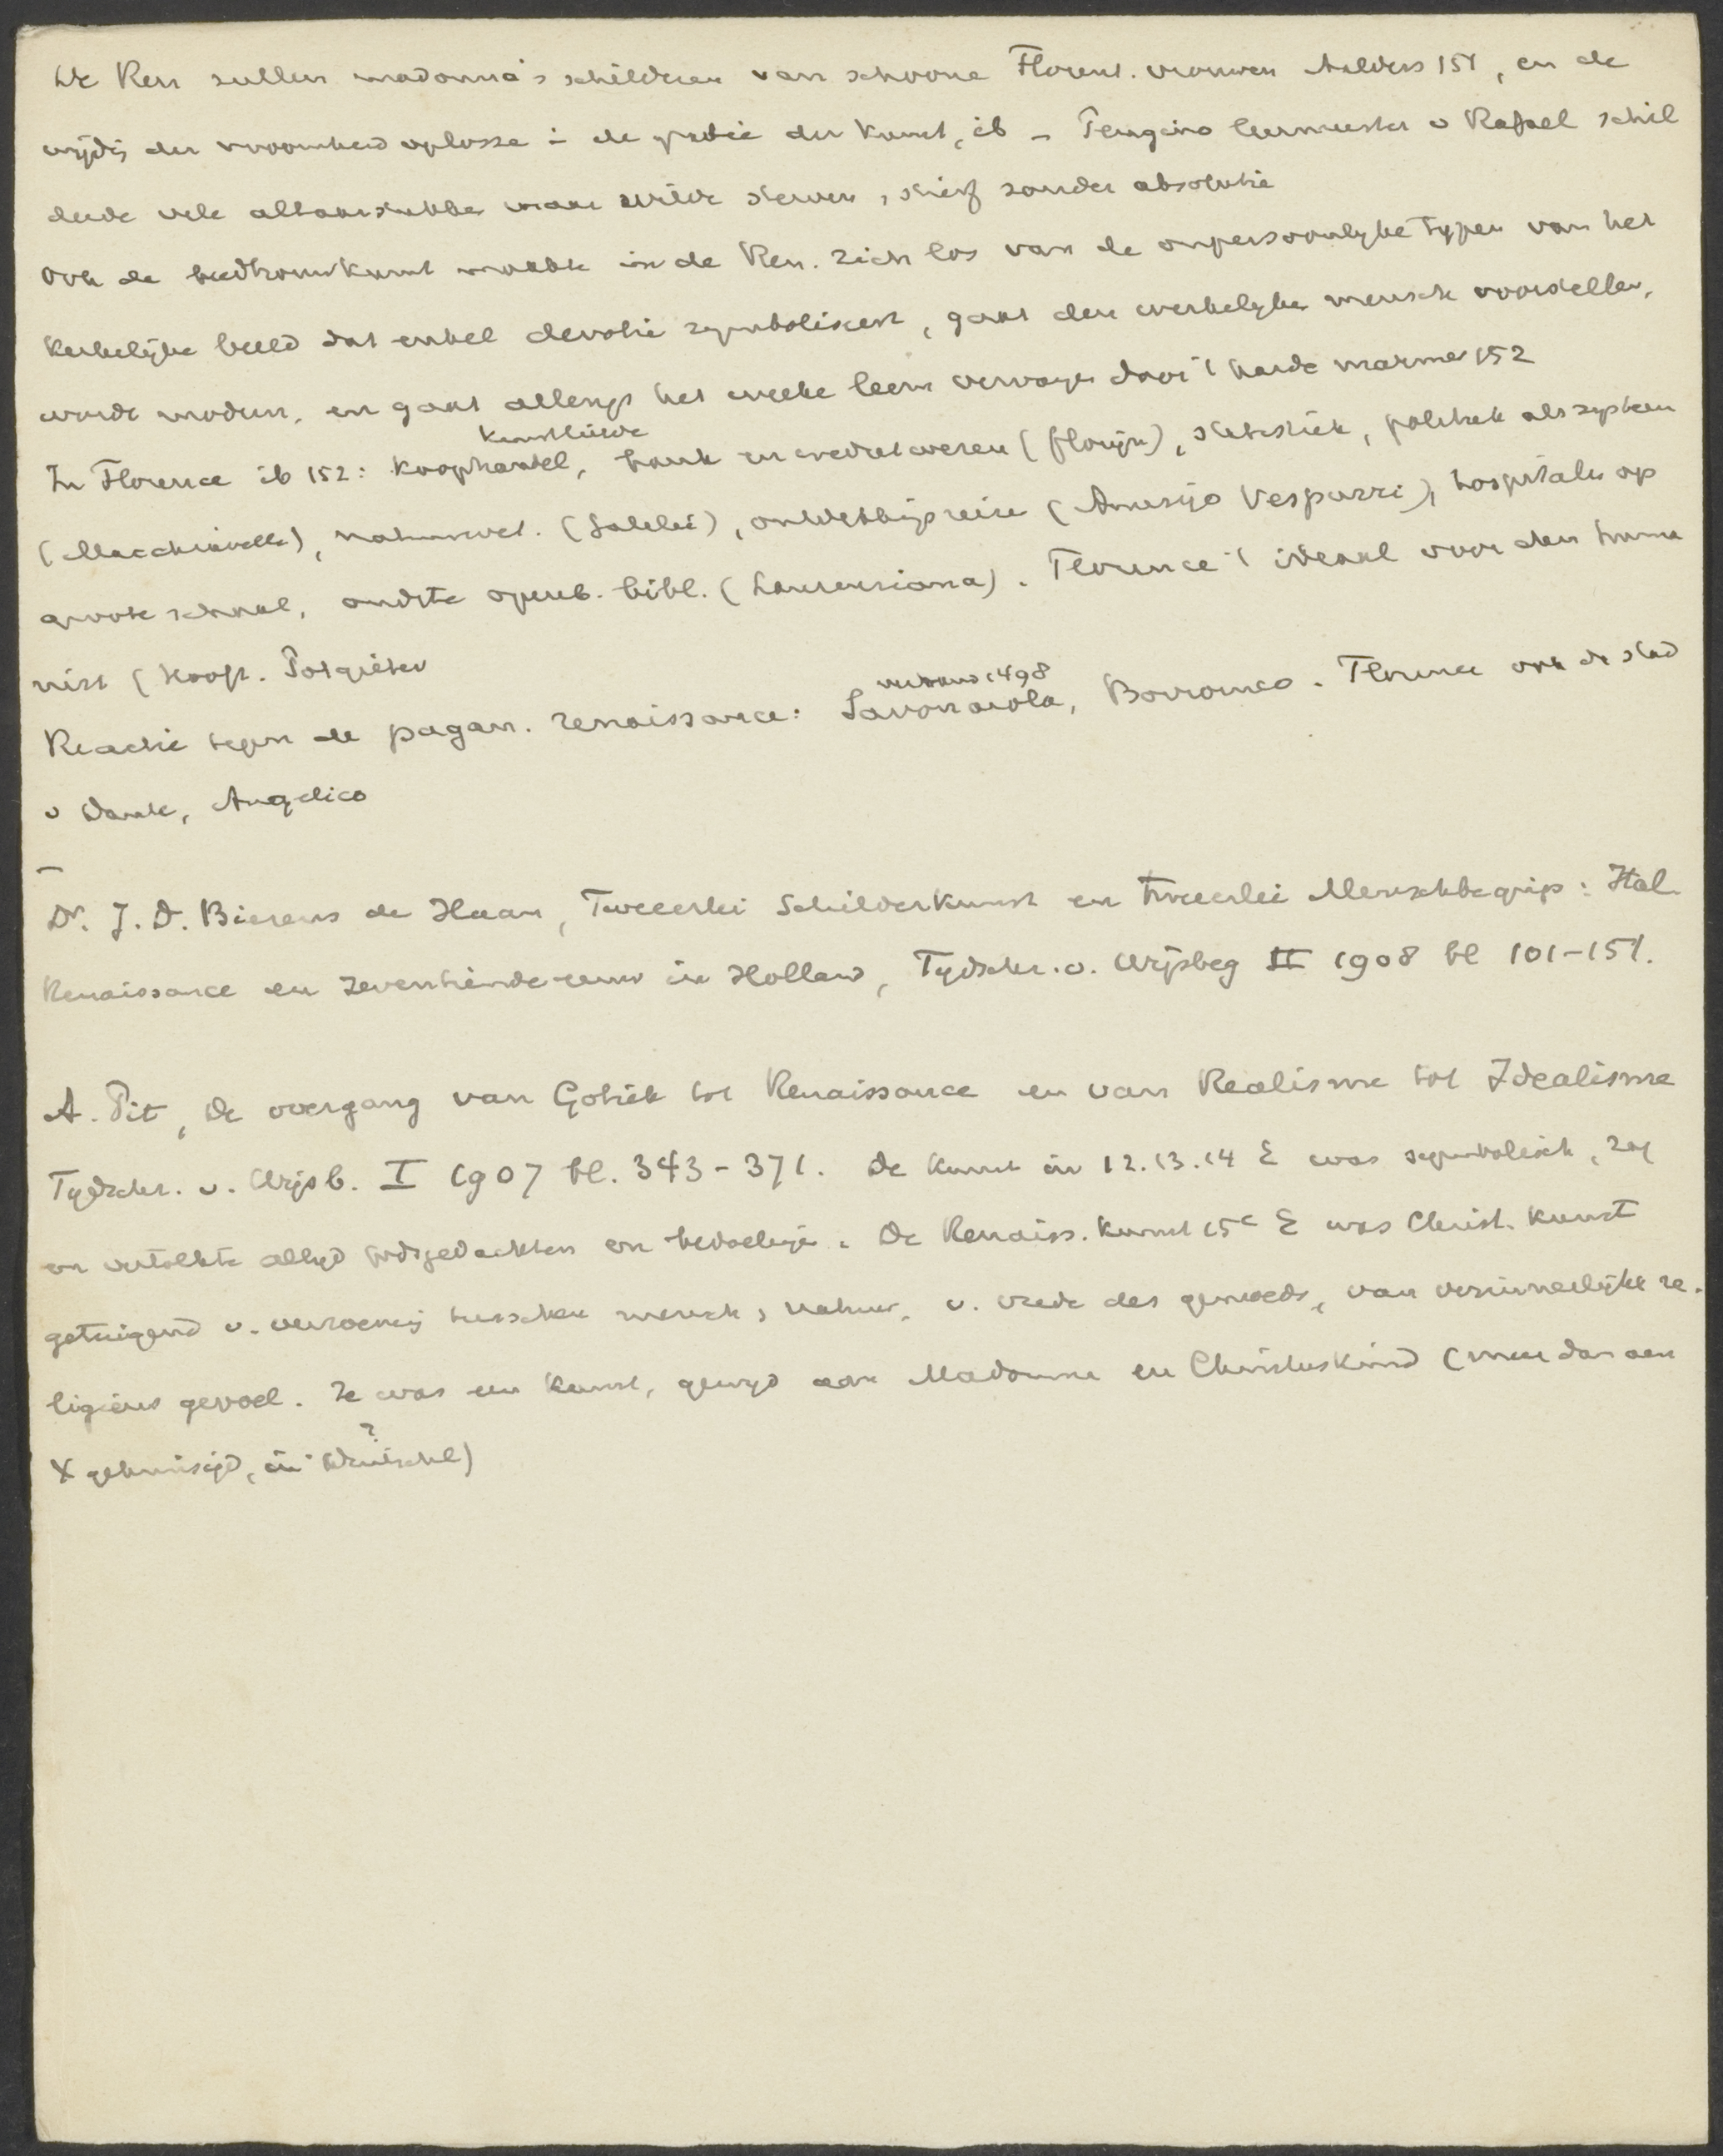 De Ren zullen madonna's schilderen van schoone Florent. vrouwen Aalders 151, en de
wijdg der vroomheid oplosse i de gratie der kunst, ib – Perugino leermeester v Rafael schil
derde vele altaarstukken maar wilde sterven, stierf zonder absolutie
Ook de beeldhouwkunst maakte in de Ren. zich los van de onpersoonlyke typen van het
kerkelijke beeld dat enkel devotie symboliseert, gaat den werkelyken mensch voorstellen,
wordt modern, en gaat allengs het weeke leem vervangen door 't harde marmer 152
kunstliefde
In Florence ib 152: koophandel, bank en credietwezen (florijn), statistiek, politiek als systeem
(Macchiavelli), natuurwet. (Galilei), ontdekkingsreize (Amerijo Vespuzzi), hospitalen op
groote schaal, oudste openb. bibl. (Laurenziana). Florence 't ideaal voor den huma
nist (Hooft. Potgieter
verbrand 1498
Reactie tegen de pagan. renaissance: Savonarola, Borromeo. Florence ook de stad
v Dante, Angelico
–
Dr. J. D. Bierens de Haan, Tweeerlei Schilderkunst en tweeerlei Menschbegrip: Ital.
Renaissance en Zeventiende-eeuw in Holland, Tydschr. v. Wijsbeg II 1908 bl 101-151.
A. Pit, De overgang van Gotiek tot Renaissance en van Realisme tot Idealisme
Tydschr. v. Wijsb. I 1907 bl. 343-371. De kunst in 12.13.14 E was symbolisch, zag
en vertolkte altyd godsgedachten en bedoelige. De Renaiss. kunst 15e E was Christ. kunst
getuigend v. verzoening tusschen mensch, natuur, v. vrede des gemoeds, van verinnerlijkt re-
ligieus gevoel. Ze was een kunst, gewyd aan Madonna en Christuskind (meer dan aan
?
X gekruisigd, in Duitschl)